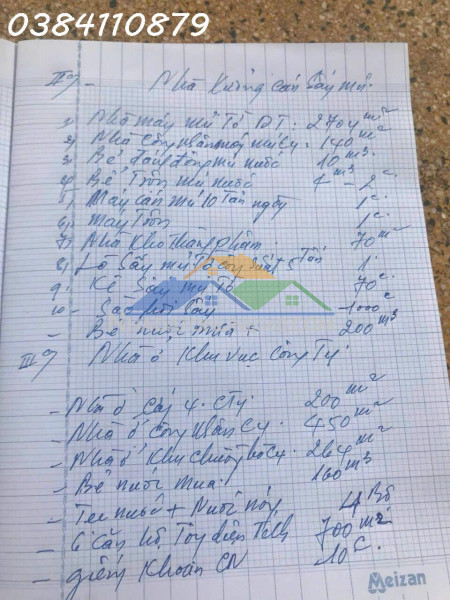 0384110879
II9 - Nhà Xưởng cán sấy mủ:
1, Nhà máy mủ Tờ DT: 2704 m²
2, Nhà công nhân mủ Cy. 140 m²
3, Bể đánh đông mủ nước 10 m³.
4, Bể Trộn mủ nước 7 m³ - 2 c.
5, Máy cán mủ 10 Tấn ngày 1 c.
6, máy Trộn 1 c.
7, Nhà kho thành phẩm. 70 m²
8, Lò sấy mủ Tờ công suất 5 Tấn 1 c
9. Kệ sấy mủ Tờ 70 c.
10 - Sào phơi sấy 1000 c
- Bể nước mưa + 200 m³
III9 Nhà ở Khu vực Công Ty
- Nhà ở Cty. 200 m²
- Nhà ở Công Nhân Cy. 450 m²
- Nhà ở Khu 264 m²
- Bể nước mưa. 160 m³
- Tec nước + Nước nóng 4 Bộ
- 6 Căn hộ 700 m²
- giếng khoan CN 10 c.
Meizan